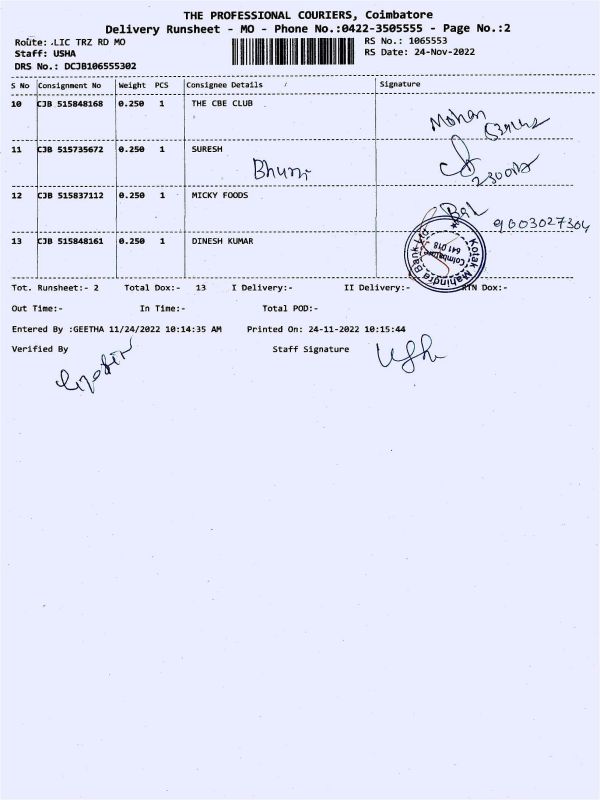 THE PROFESSIONAL COURIERS, Coimbatore
Delivery Runsheet - MO - Phone No.:0422-3505555 - Page No.:2
Route: .LIC TRZ RD MO
RS No.: 1065553
Staff: USHA
RS Date: 24-Nov-2022
DRS No.: DCJB106555302
S No Consignment No Weight PCS Consignee Details Signature
10 CJB 515848168 0.250 1 THE CBE CLUB
Mohan
11 CJB 515735672 0.250 1 SURESH
12 CJB 515837112 0.250 1 MICKY FOODS
9003027304
13 CJB 515848161 0.250 1 DINESH KUMAR
Kotak Mahindra Bank Ltd
Coimbatore
641 018
Tot. Runsheet:- 2 Total Dox:- 13 I Delivery:- II Delivery:- RTN Dox:-
Out Time:- In Time:- Total POD:-
Entered By :GEETHA 11/24/2022 10:14:35 AM Printed On: 24-11-2022 10:15:44
Verified By Staff Signature